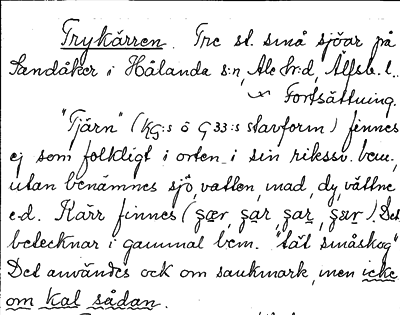 Trykärren. Tre st. små sjöar på
Sandåker i Hålanda s:n, Ale hd, Älfsb. l.
Fortsättning.
"Tjärn" (KG:s ö G 33:s stavform) finnes
ej som folkligt i orten i sin rikssv. bem.,
utan benämnes sjö, vatten, mad, dy, våttne
e.d. Kärr finnes ( ). Det
betecknar i gammal bem. "tät småskog"
Det användes ock om sankmark, men icke
om kal sådan.